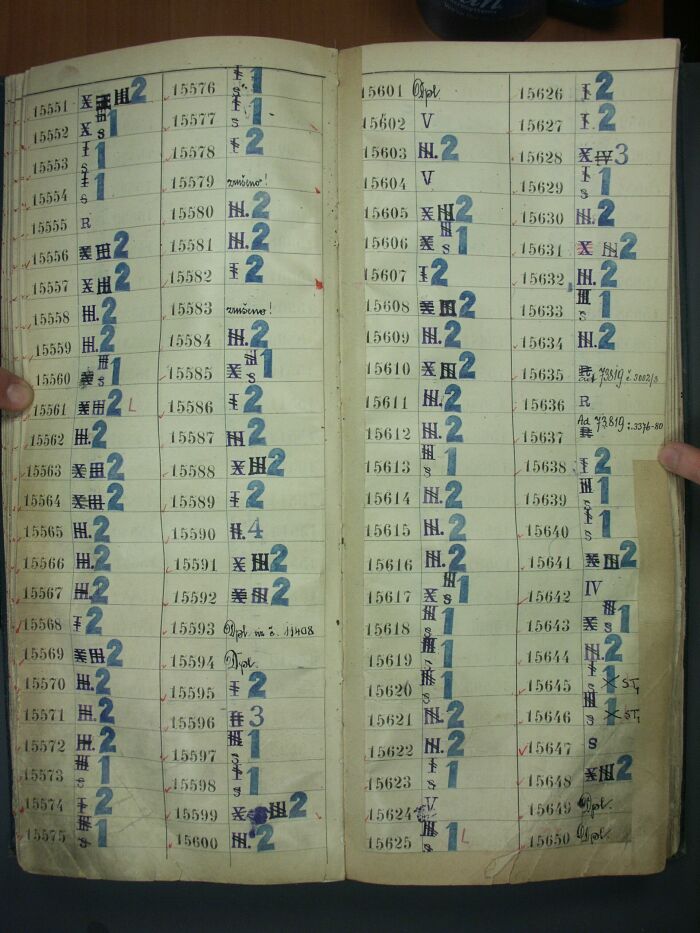 15551 X III 2
15552 X s 1
15553 I s 1
15554 I s 1
15555 R
15556 X III 2
15557 X III 2
15558 III. 2
15559 III. 2
15560 X III s 1
15561 X III 2 L
15562 III. 2
15563 X III 2
15564 X III 2
15565 III. 2
15566 III. 2
15567 III. 2
15568 I 2
15569 X III 2
15570 III. 2
15571 III. 2
15572 III. 2
15573 III s 1
15574 I 2
15575 III s 1
15576 I s 1
15577 I s 1
15578 I 2
15579 zrušeno!
15580 III. 2
15581 III. 2
15582 I 2
15583 zrušeno!
15584 III. 2
15585 X III s 1
15586 I 2
15587 III. 2
15588 X III 2
15589 I 2
15590 II. 4
15591 X III 2
15592 X III 2
15593 Dpl. na č. 11408
15594 Dpl.
15595 I 2
15596 II 3
15597 III s 1
15598 I s 1
15599 X III 2
15600 III. 2
15601 Dpl.
15602 V
15603 III. 2
15604 V
15605 X III 2
15606 X III s 1
15607 I 2
15608 X III 2
15609 III. 2
15610 X III 2
15611 III. 2
15612 III. 2
15613 III s 1
15614 III. 2
15615 III. 2
15616 III. 2
15617 X III s 1
15618 III s 1
15619 III s 1
15620 III s 1
15621 III. 2
15622 III. 2
15623 I s 1
15624 V
15625 III s 1 L
15626 I 2
15627 I 2
15628 X IV 3
15629 I s 1
15630 III. 2
15631 X III 2
15632 III. 2
15633 III s 1
15634 III. 2
15635 R 73819 č. 3002/3
15636 R
15637 Ad 73819 : 3376-80 R
15638 I 2
15639 III s 1
15640 I s 1
15641 X III 2
15642 IV
15643 X III s 1
15644 III. 2
15645 I s 1 X ST,
15646 III s 1 X ST,
15647 s
15648 X III 2
15649 Dpl.
15650 Dpl.